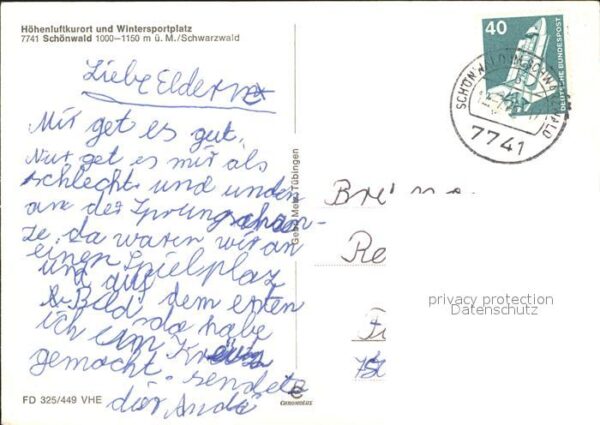 Höhenluftkurort und Wintersportplatz
7741 Schönwald 1000-1150 m ü. M./Schwarzwald
Liebe Eldern
Mir get es gut,
Nur get es mir als
schlecht und unden
an der Sprungschan-
ze, da waren wir an
einen Spielplaz
und auf
dem ersten
Bild, da habe
ich ein Kreuz
gemacht. sendete
dier André
FD 325/449 VHE
Gebr. Metz Tübingen
40
DEUTSCHE BUNDESPOST
7741
Bre
Re
privacy protection
Datenschutz